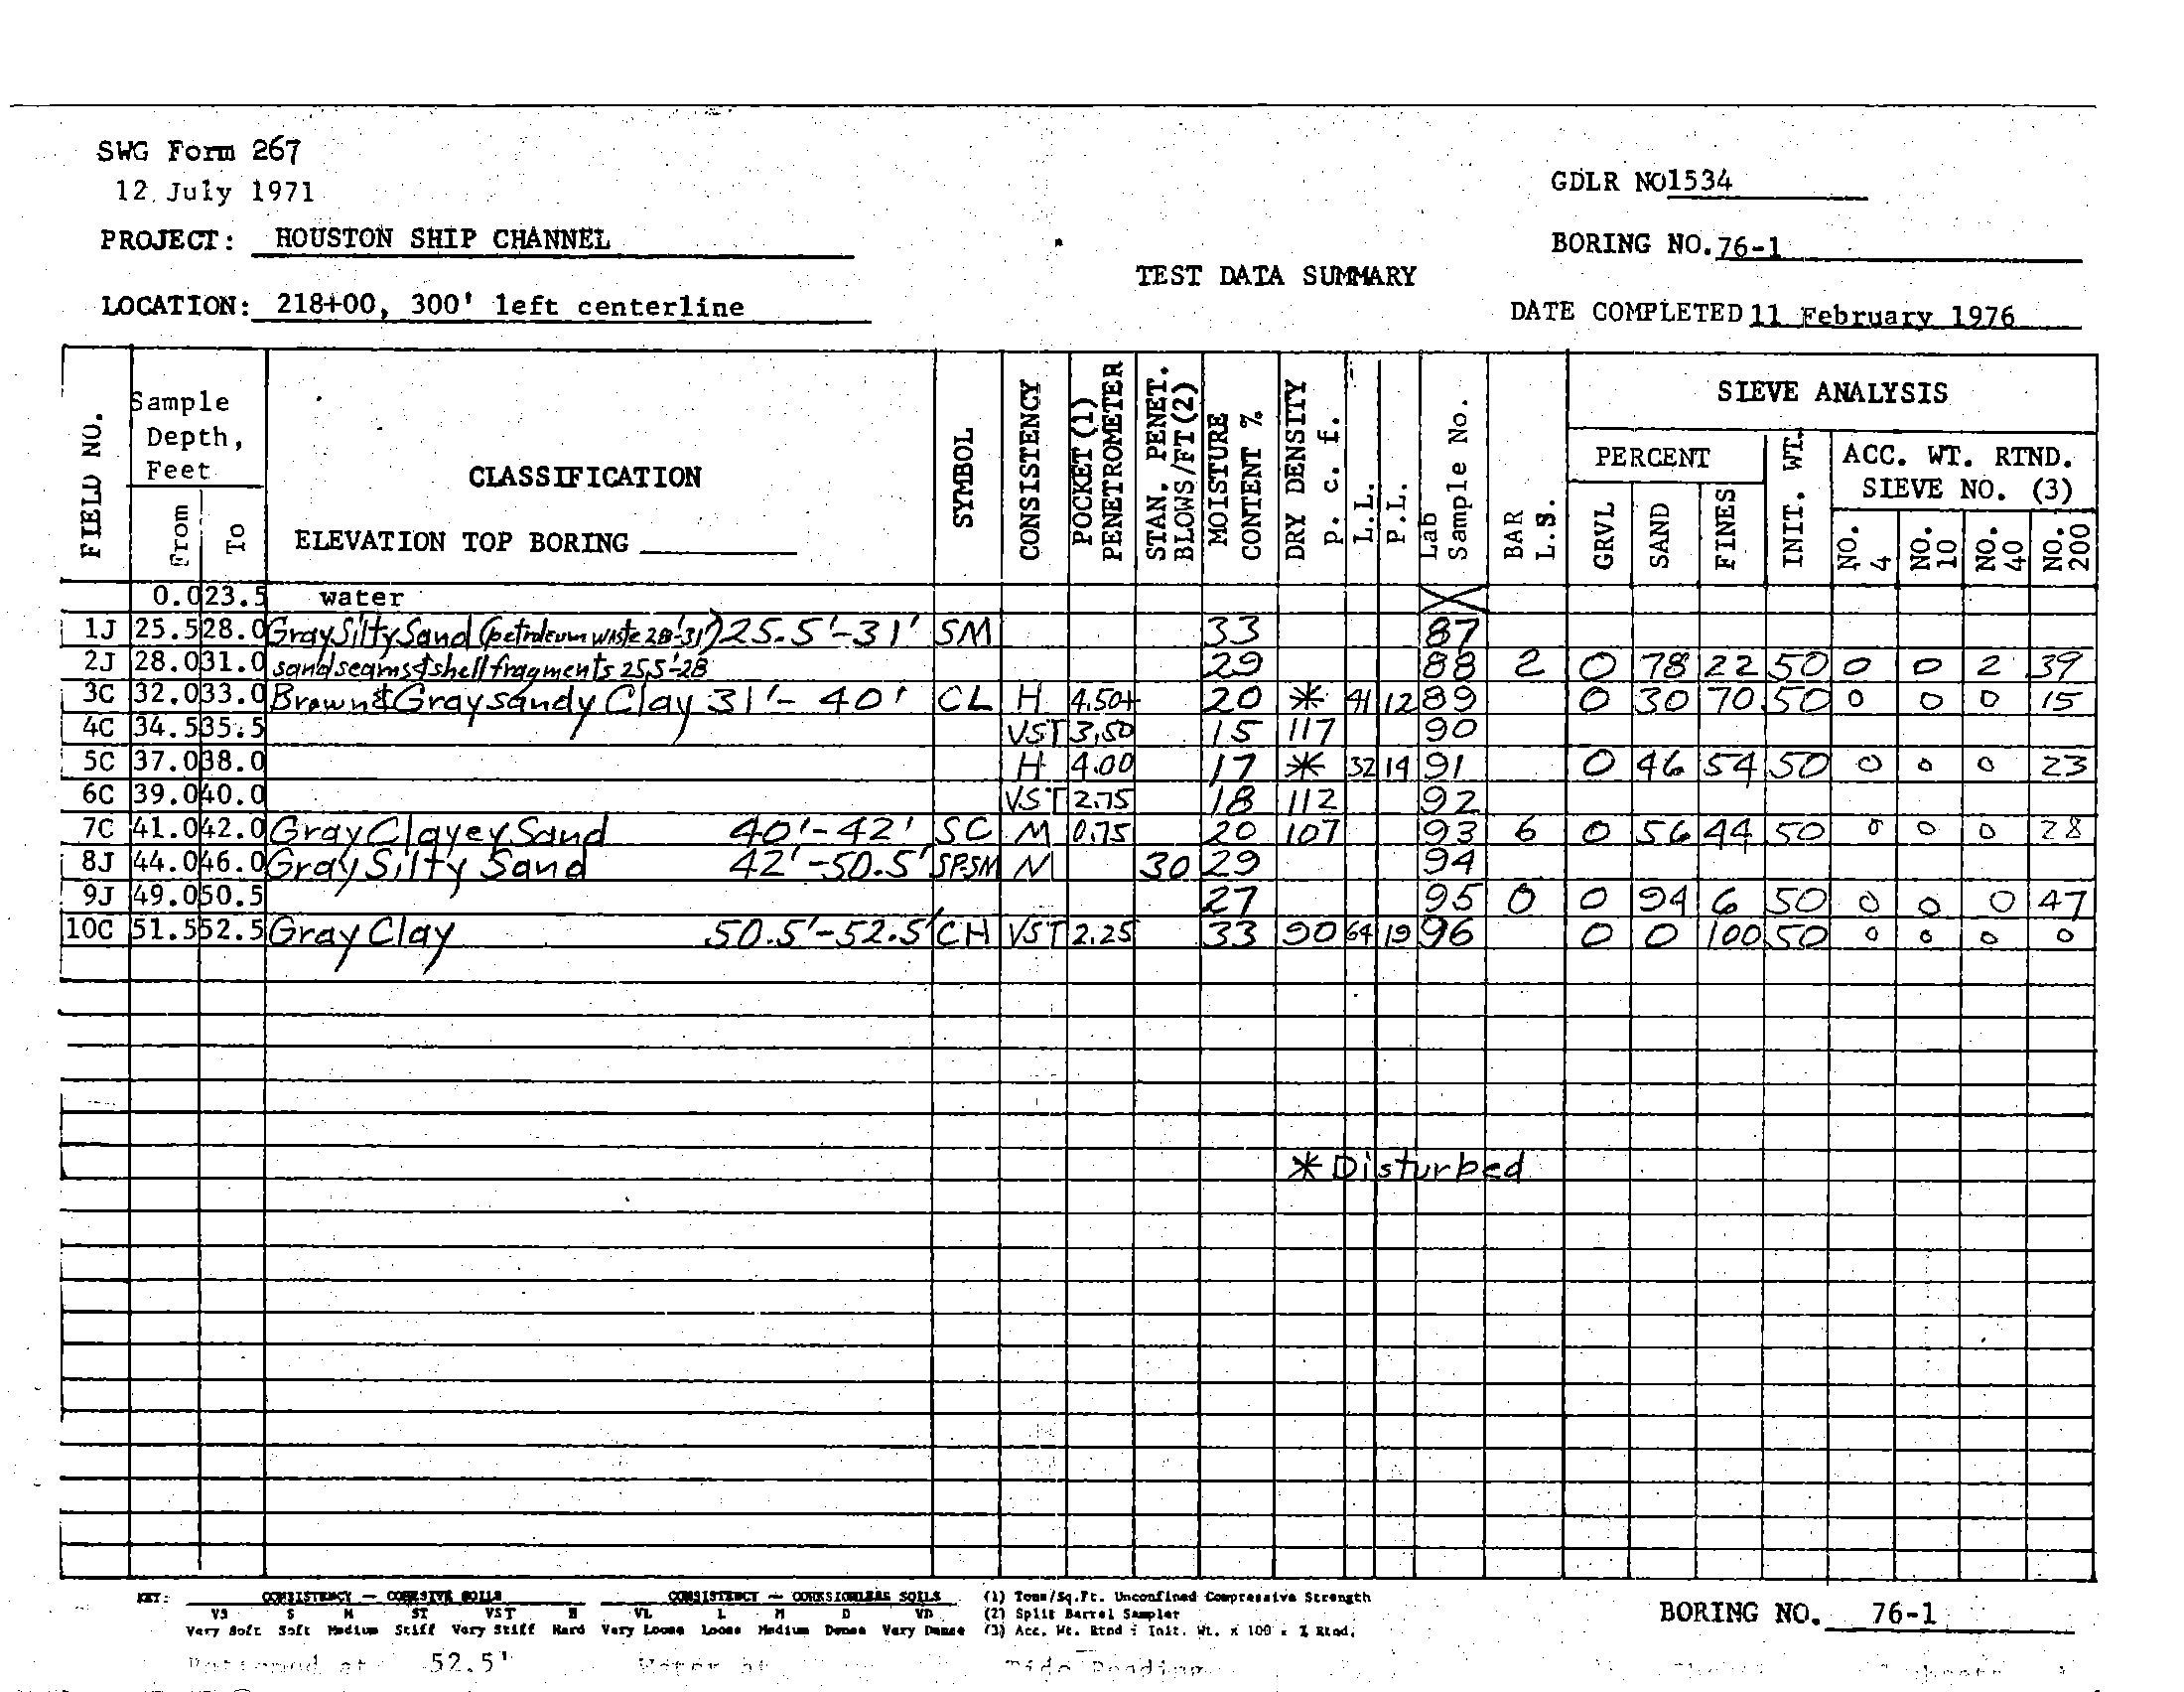 SWG Form 267
12 July 1971
GDLR NO 1534
PROJECT: HOUSTON SHIP CHANNEL
BORING NO. 76-1
TEST DATA SUMMARY
LOCATION: 218+00, 300' left centerline
DATE COMPLETED 11 February 1976
FIELD NO.
Sample Depth, Feet
From
To
CLASSIFICATION
ELEVATION TOP BORING
SYMBOL
CONSISTENCY
POCKET (1) PENETROMETER
STAN. PENET. BLOWS/FT (2)
MOISTURE CONTENT %
DRY DENSITY p. c. f.
L.L.
P.L.
Lab Sample No.
BAR L.S.
SIEVE ANALYSIS
PERCENT
GRVL
SAND
FINES
INIT. WT.
ACC. WT. RTND. SIEVE NO. (3)
NO. 4
NO. 10
NO. 40
NO. 200
0.0 23.5 water
1J 25.5 28.0 Gray Silty Sand (petroleum waste 28'-31') 25.5'-31' SM 33 87
2J 28.0 31.0 sand seams & shell fragments 25.5'-28 29 88 2 0 78 22 50 0 0 2 39
3C 32.0 33.0 Brown & Gray sandy Clay 31'- 40' CL H 4.50+ 20 * 41 12 89 0 30 70 50 0 0 0 15
4C 34.5 35.5 VST 3.50 15 117 90
5C 37.0 38.0 H 4.00 17 * 32 14 91 0 46 54 50 0 0 0 23
6C 39.0 40.0 VST 2.75 18 112 92
7C 41.0 42.0 Gray Clayey Sand 40'-42' SC M 0.75 20 107 93 6 0 56 44 50 0 0 0 28
8J 44.0 46.0 Gray Silty Sand 42'-50.5' SP-SM M 30 29 94
9J 49.0 50.5 27 95 0 0 94 6 50 0 0 0 47
10C 51.5 52.5 Gray Clay 50.5'-52.5' CH VST 2.25 33 90 64 19 96 0 0 100 50 0 0 0 0
* Disturbed
KEY: CONSISTENCY — COHESIVE SOILS
VS S M ST VST H
Very Soft Soft Medium Stiff Very Stiff Hard
CONSISTENCY — COHESIONLESS SOILS
VL L M D VD
Very Loose Loose Medium Dense Very Dense
(1) Tons/Sq.Ft. Unconfined Compressive Strength
(2) Split Barrel Sampler
(3) Acc. Wt. Rtnd ÷ Init. Wt. x 100 = % Rtnd.
BORING NO. 76-1
Bottomed at 52.5' Water at Tide Reading